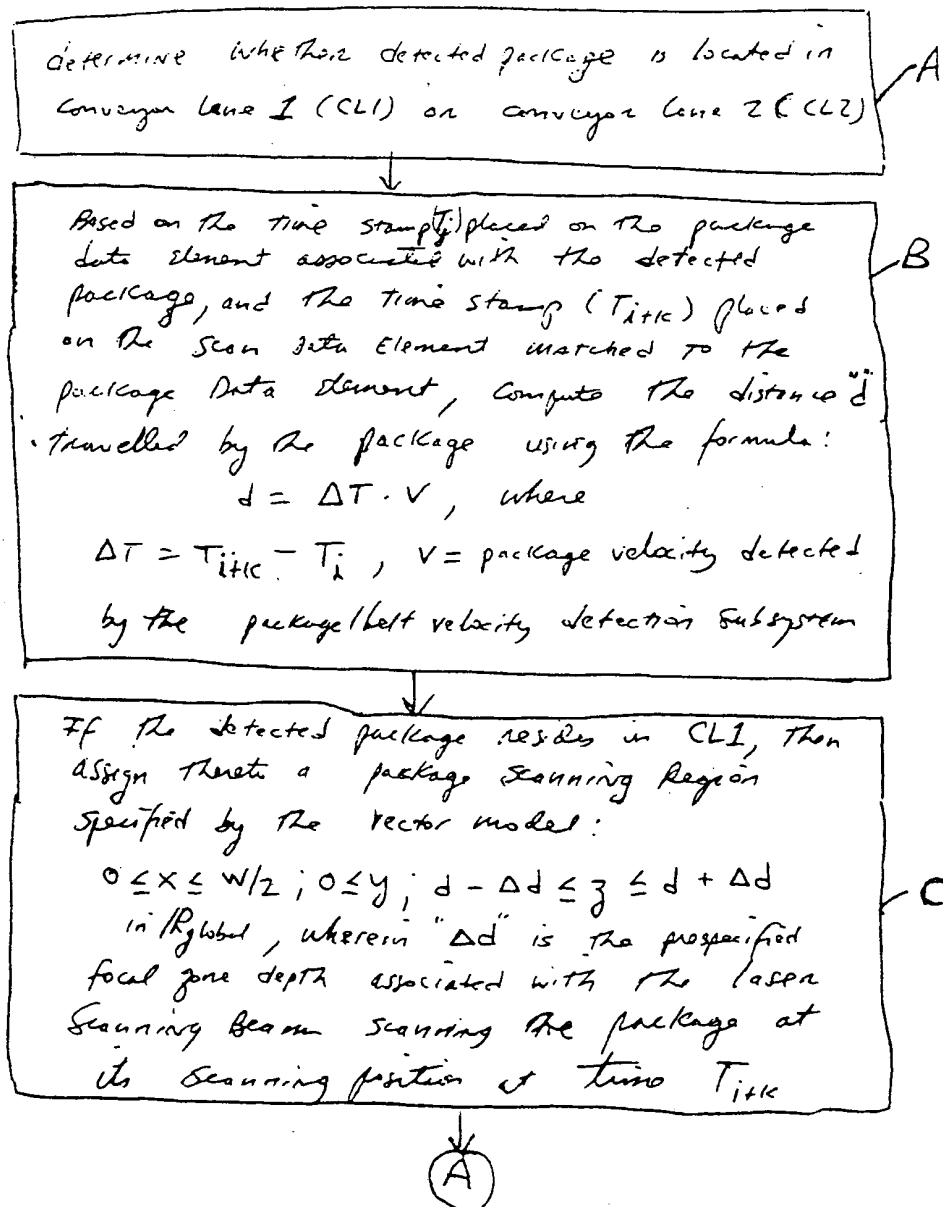 determine whether detected package is located in
conveyor lane 1 (CL1) or conveyor lane 2 (CL2)
A
Based on the time stamp (Tj) placed on the package
data element associated with the detected
B
package, and the time stamp (Ti+k) placed
on the Scan Data Element matched to the
package Data Element, compute the distance "d"
travelled by the package using the formula:
d = ΔT · V, where
ΔT = Ti+k - Ti, V = package velocity detected
by the package/belt velocity detection subsystem
If the detected package resides in CL1, then
assign thereto a package Scanning Region
specified by the vector model:
0 ≤ x ≤ W/2 ; 0 ≤ y ; d - Δd ≤ z ≤ d + Δd
C
in Rglobal, wherein "Δd" is the prespecified
focal zone depth associated with the laser
Scanning Beam scanning the package at
its scanning position at time Ti+k
A